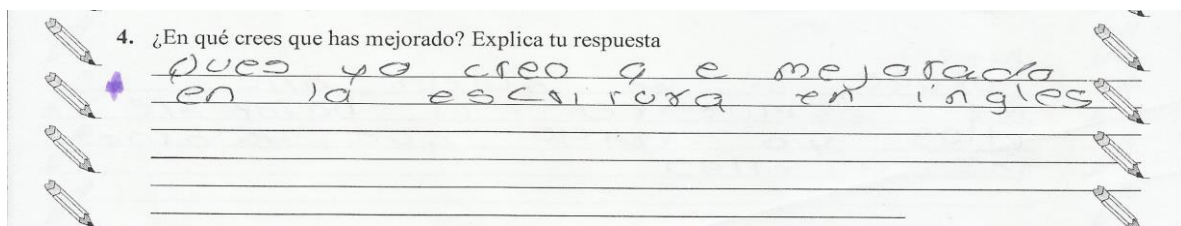 4. ¿En qué crees que has mejorado? Explica tu respuesta
pues yo creo q e mejorado
en la escritura en ingles